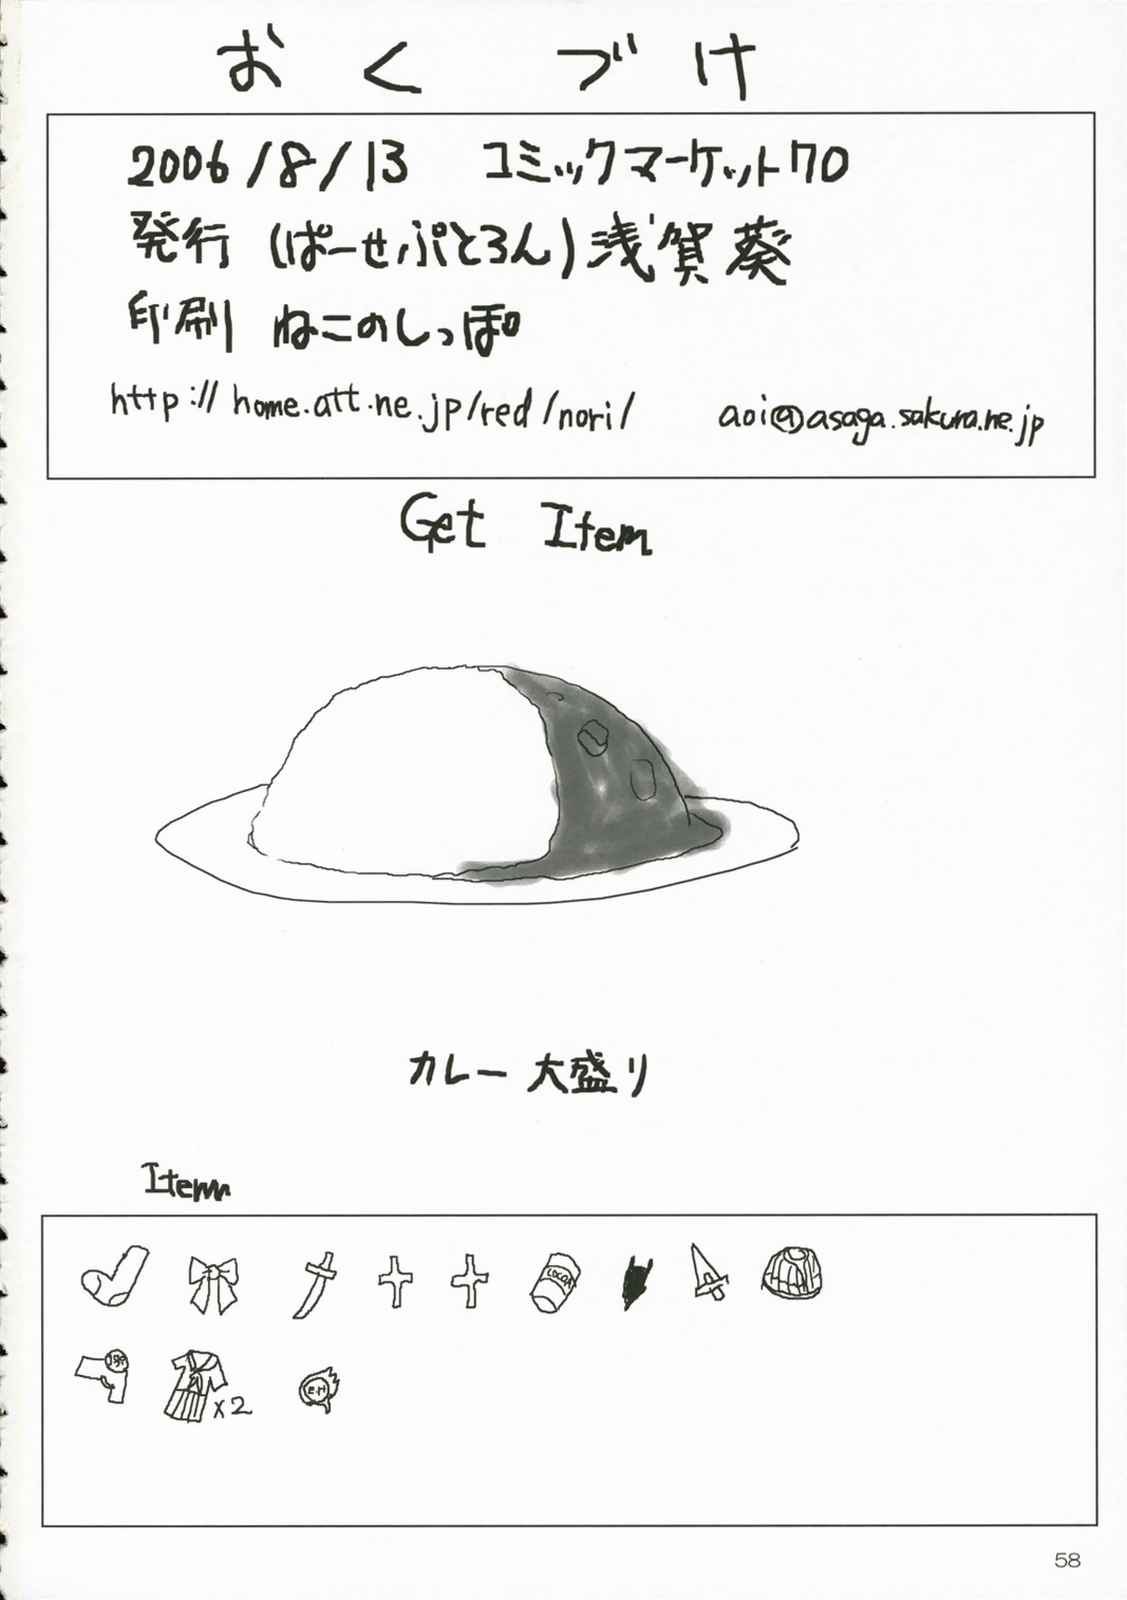 おくづけ
2006/8/13 コミックマーケット70
発行 (ぱーせぷとろん) 浅賀葵
印刷 ねこのしっぽ
http://home.att.ne.jp/red/nori/ aoi@asaga.sakura.ne.jp
Get Item
カレー大盛り
Item
COCOA
x2
58